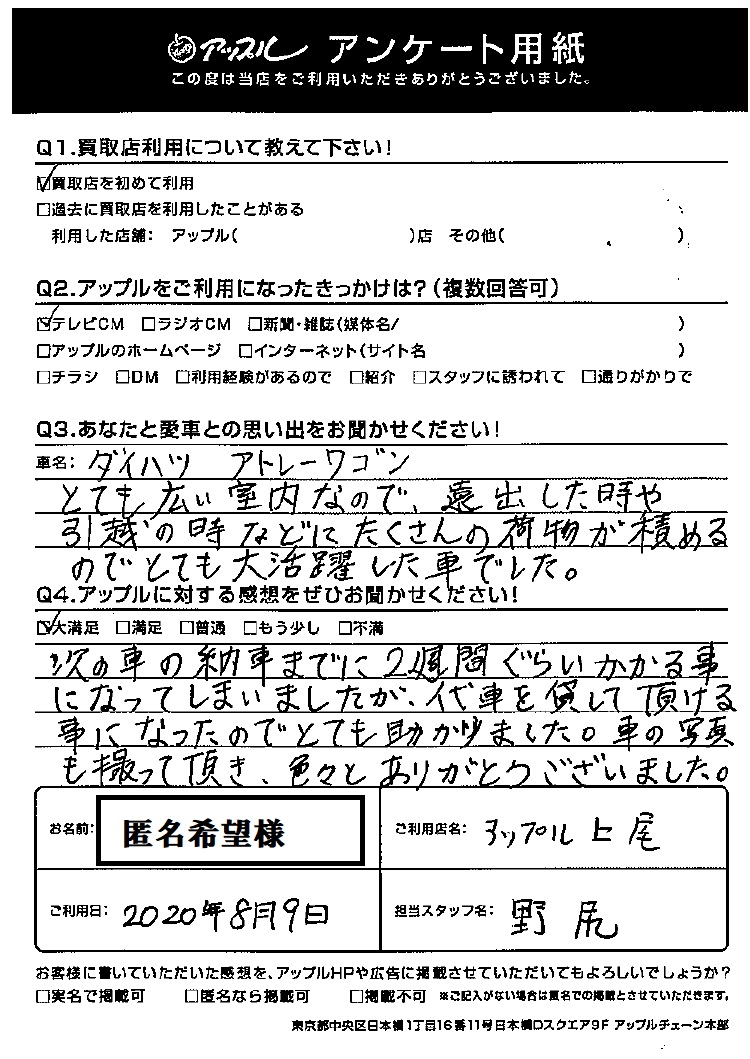 アップル アンケート用紙
この度は当店をご利用いただきありがとうございました。
Q1.買取店利用について教えて下さい！
☑買取店を初めて利用
□過去に買取店を利用したことがある
利用した店舗： アップル( )店 その他( )
Q2.アップルをご利用になったきっかけは？（複数回答可）
☑テレビCM □ラジオCM □新聞・雑誌(媒体名/ )
□アップルのホームページ □インターネット(サイト名 )
□チラシ □DM □利用経験があるので □紹介 □スタッフに誘われて □通りがかりで
Q3.あなたと愛車との思い出をお聞かせください！
車名： ダイハツ アトレーワゴン
とても広い室内なので、遠出した時や
引越の時などにたくさんの荷物が積める
のでとても大活躍した車でした。
Q4.アップルに対する感想をぜひお聞かせください！
☑大満足 □満足 □普通 □もう少し □不満
次の車の納車までに2週間ぐらいかかる事
になってしまいましたが、代車を貸して頂ける
事になったのでとても助かりました。車の写真
も撮って頂き、色々とありがとうございました。
お名前： 匿名希望様
ご利用店名： アップル上尾
ご利用日： 2020年8月9日
担当スタッフ名： 野尻
お客様に書いていただいた感想を、アップルHPや広告に掲載させていただいてもよろしいでしょうか？
□実名で掲載可 □匿名なら掲載可 □掲載不可 ※ご記入がない場合は匿名での掲載とさせていただきます。
東京都中央区日本橋1丁目16番11号日本橋Dスクエア9F アップルチェーン本部